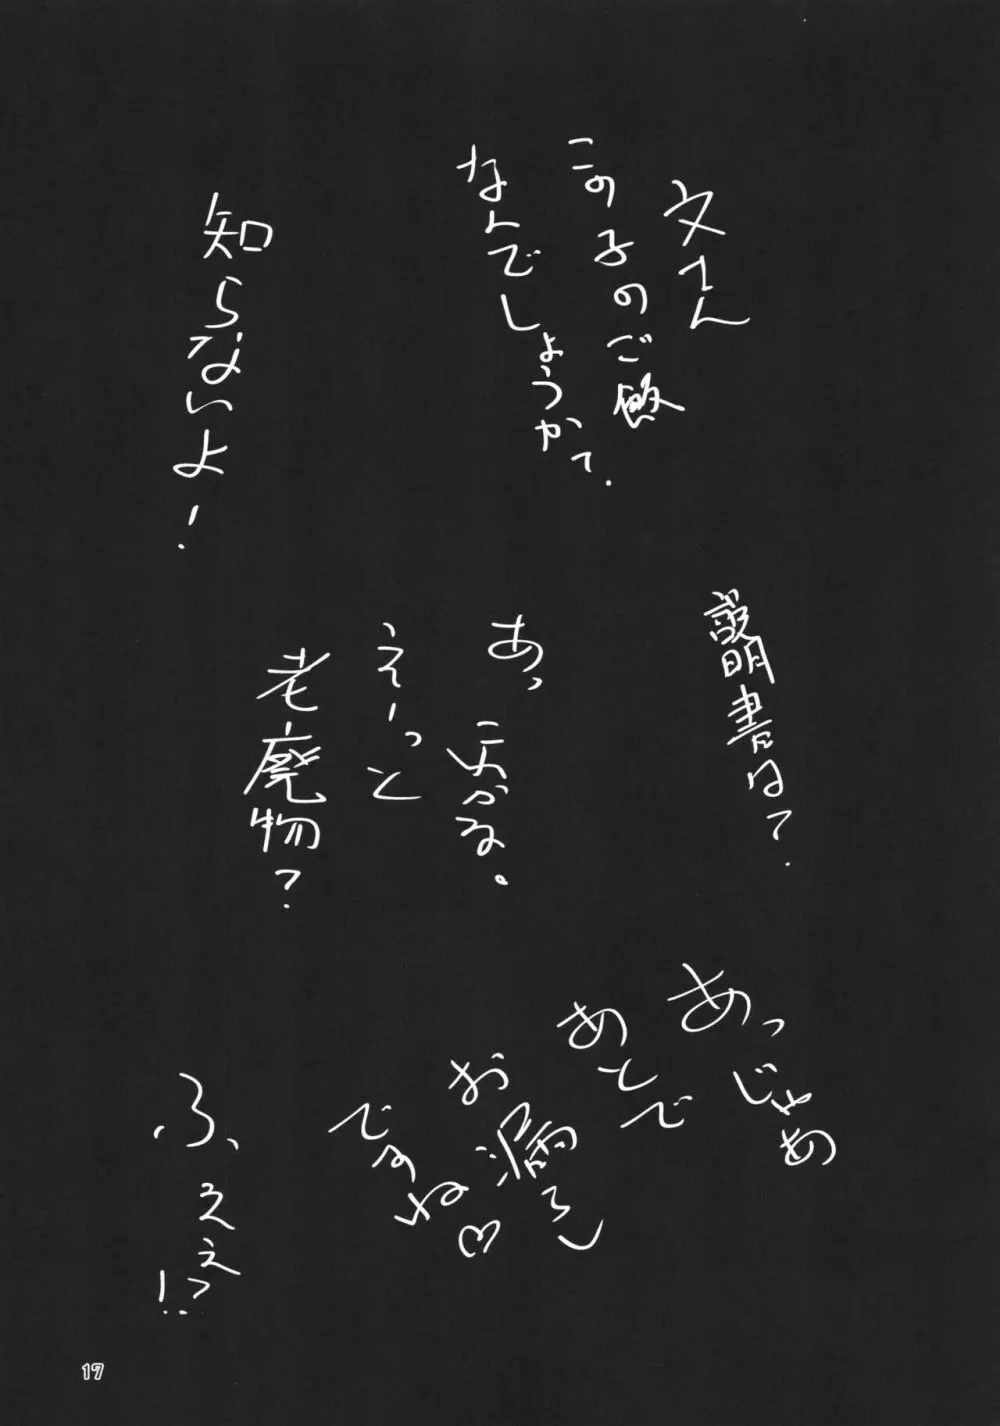 文さん
この子のご飯
なんでしょうかて.
知らないよ!
説明書はて.
あっ
天かな。
えーっと
老廃物?
あっじゃあ
あとで
お漏らし
ですね♡
ふ、ええ!?
17